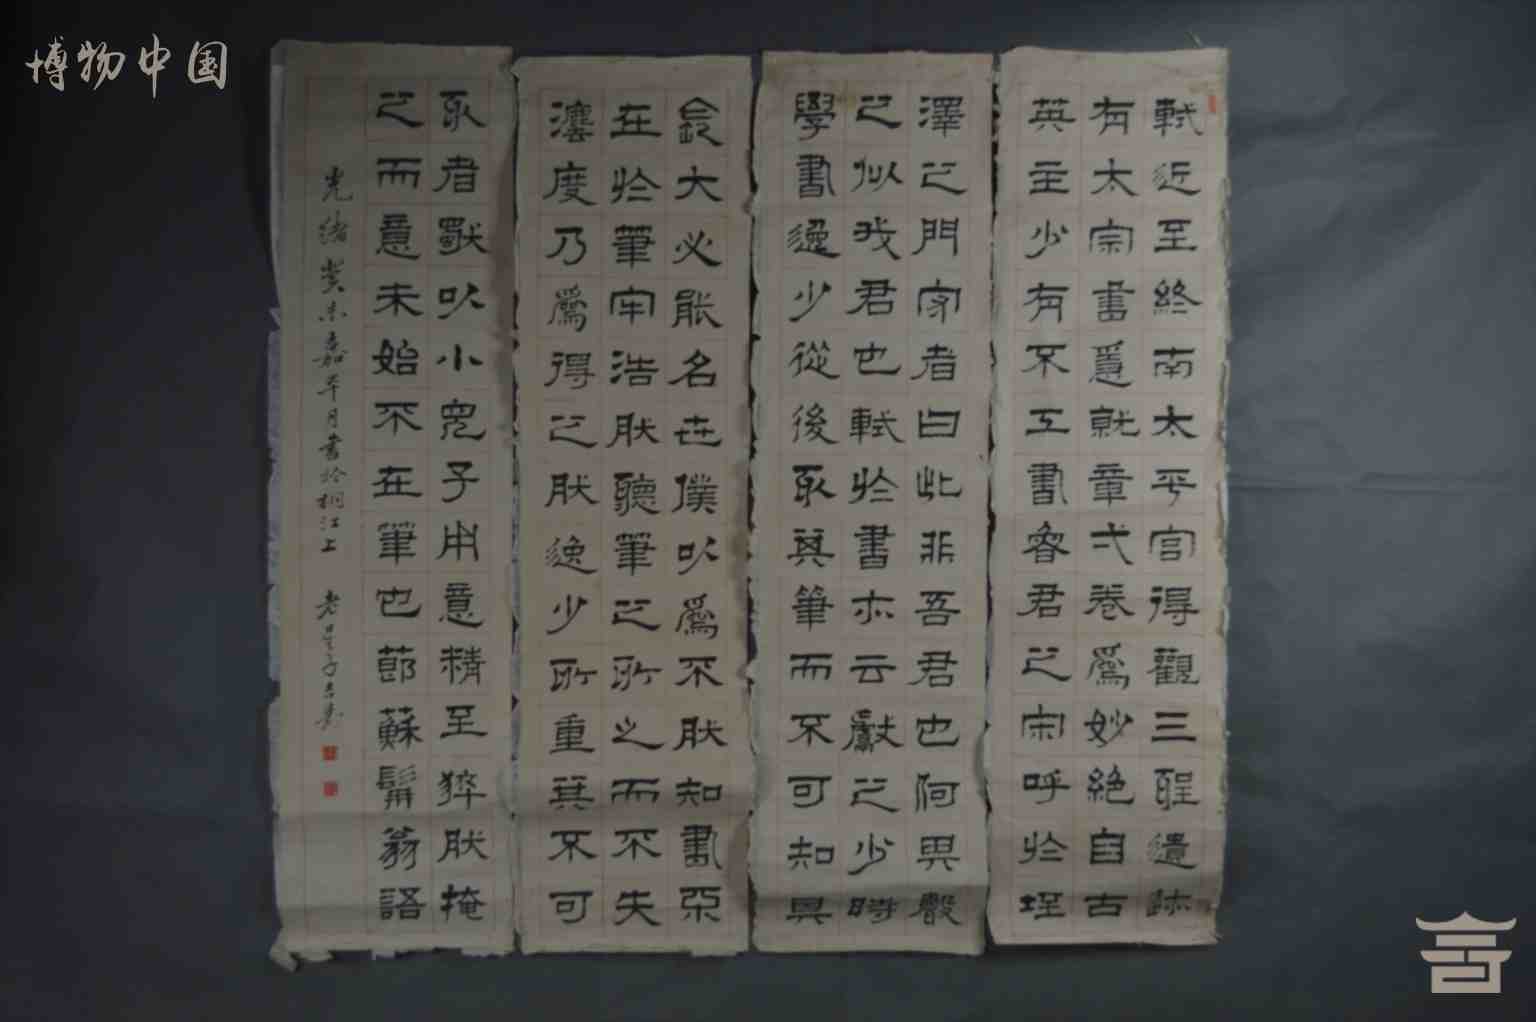 博物中国
軾近至終南太平宮得觀三聖遺跡
有太宗書急就章弌卷爲妙絕自古
英主少有不工書魯君之宋呼於垤
澤之門家者曰此非吾君也何其聲
之似我君也軾於書亦云獻之少時
學書逸少從後取其筆而不可知其
長大必能名世僕以爲不然知書不
在於筆牢浩然聽筆之所之而不失
灋度乃爲得之然逸少所重其不可
取者獨以小兒子用意精至猝然掩
之而意未始不在筆也節蘇髯翁語
光緒癸未嘉平月書於桐江上 老